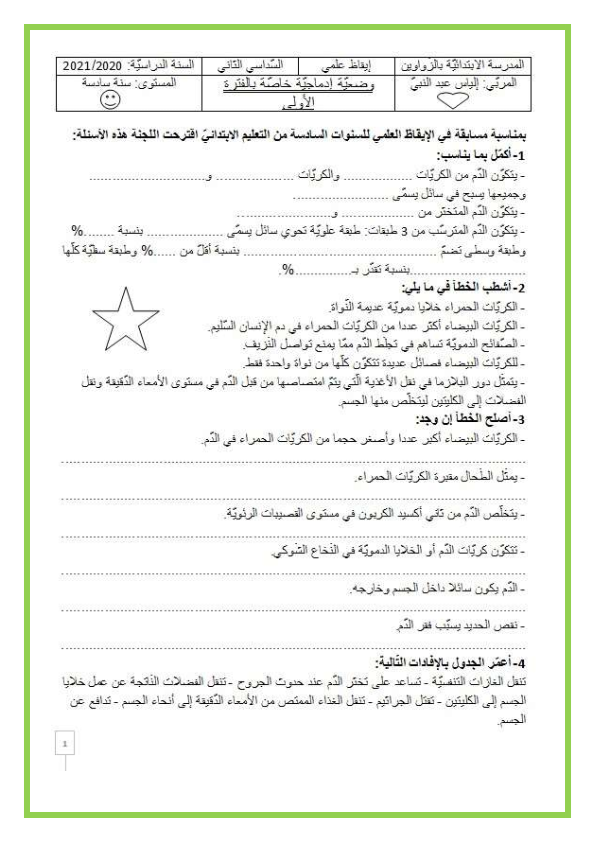 المدرسة الابتدائيّة بالزّواوين إيقاظ علمي السّداسي الثّاني السنة الدراسيّة: 2021/2020
المربّي: إلياس عبد النبيّ وضعيّة إدماجيّة خاصّة بالفترة المستوى: سنة سادسة
الأولى
بمناسبة مسابقة في الإيقاظ العلمي للسنوات السادسة من التعليم الابتدائيّ اقترحت اللجنة هذه الأسئلة:
1- أكمّل بما يناسب:
- يتكوّن الدّم من الكريّات .................. والكريّات .................... و..............................
وجميعها يسبح في سائل يسمّى .........................
- يتكوّن الدّم المتخثّر من ................... و........................
- يتكوّن الدّم المترسّب من 3 طبقات: طبقة علويّة تحوي سائل يسمّى .................... بنسبة ........%
وطبقة وسطى تضمّ .................................................. بنسبة أقلّ من ......% وطبقة سفليّة كلّها
..............................بنسبة تقدّر بـ...............%.
2- أشطب الخطأ في ما يلي:
- الكريّات الحمراء خلايا دمويّة عديمة النّواة.
- الكريّات البيضاء أكثر عددا من الكريّات الحمراء في دم الإنسان السّليم.
- الصّفائح الدمويّة تساهم في تجلّط الدّم ممّا يمنع تواصل النّزيف.
- للكريّات البيضاء فصائل عديدة تتكوّن كلّها من نواة واحدة فقط.
- يتمثّل دور البلازما في نقل الأغذية الّتي يتمّ امتصاصها من قبل الدّم في مستوى الأمعاء الدّقيقة ونقل
الفضلات إلى الكليتين ليتخلّص منها الجسم.
3- أصلح الخطأ إن وجد:
- الكريّات البيضاء أكبر عددا وأصغر حجما من الكريّات الحمراء في الدّم.
................................................................................................
- يمثّل الطّحال مقبرة الكريّات الحمراء.
................................................................................................
- يتخلّص الدّم من ثاني أكسيد الكربون في مستوى القصيبات الرئويّة.
................................................................................................
- تتكوّن كريّات الدّم أو الخلايا الدمويّة في النّخاع الشّوكي.
................................................................................................
- الدّم يكون سائلا داخل الجسم وخارجه.
................................................................................................
- نقص الحديد يسبّب فقر الدّم.
................................................................................................
4- أعمّر الجدول بالإفادات التّالية:
تنقل الغازات التنفسيّة - تساعد على تخثّر الدّم عند حدوث الجروح - تنقل الفضلات النّاتجة عن عمل خلايا
الجسم إلى الكليتين - تقتل الجراثيم - تنقل الغذاء الممتص من الأمعاء الدّقيقة إلى أنحاء الجسم - تدافع عن
الجسم.
1